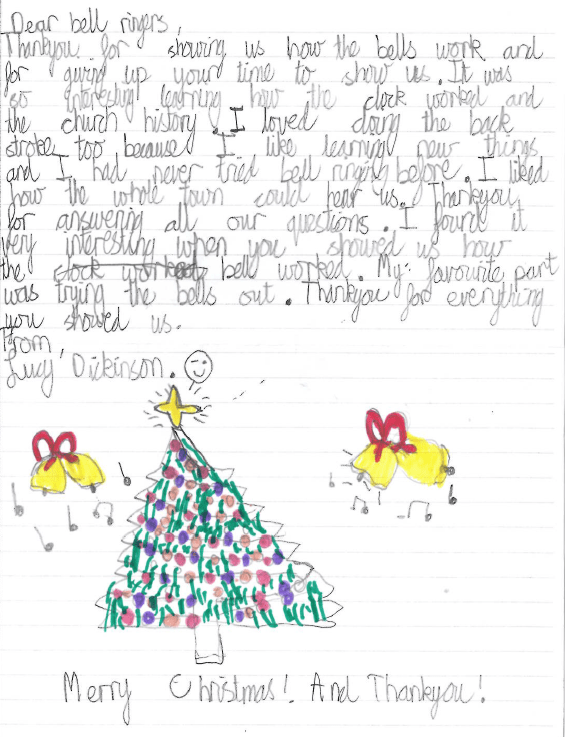 Dear bell ringers,
Thankyou for showing us how the bells work and
for giving up your time to show us. It was
so interesting learning how the clock worked and
the church history. I loved doing the back
stroke too because I like learning new things
and I had never tried bell ringing before. I liked
how the whole town could hear us. Thankyou
for answering all our questions. I found it
very interesting when you showed us how
the clock worked bell worked. My favourite part
was trying the bells out. Thankyou for everything
you showed us.
From
Lucy Dickinson.
Merry Christmas! And Thankyou!